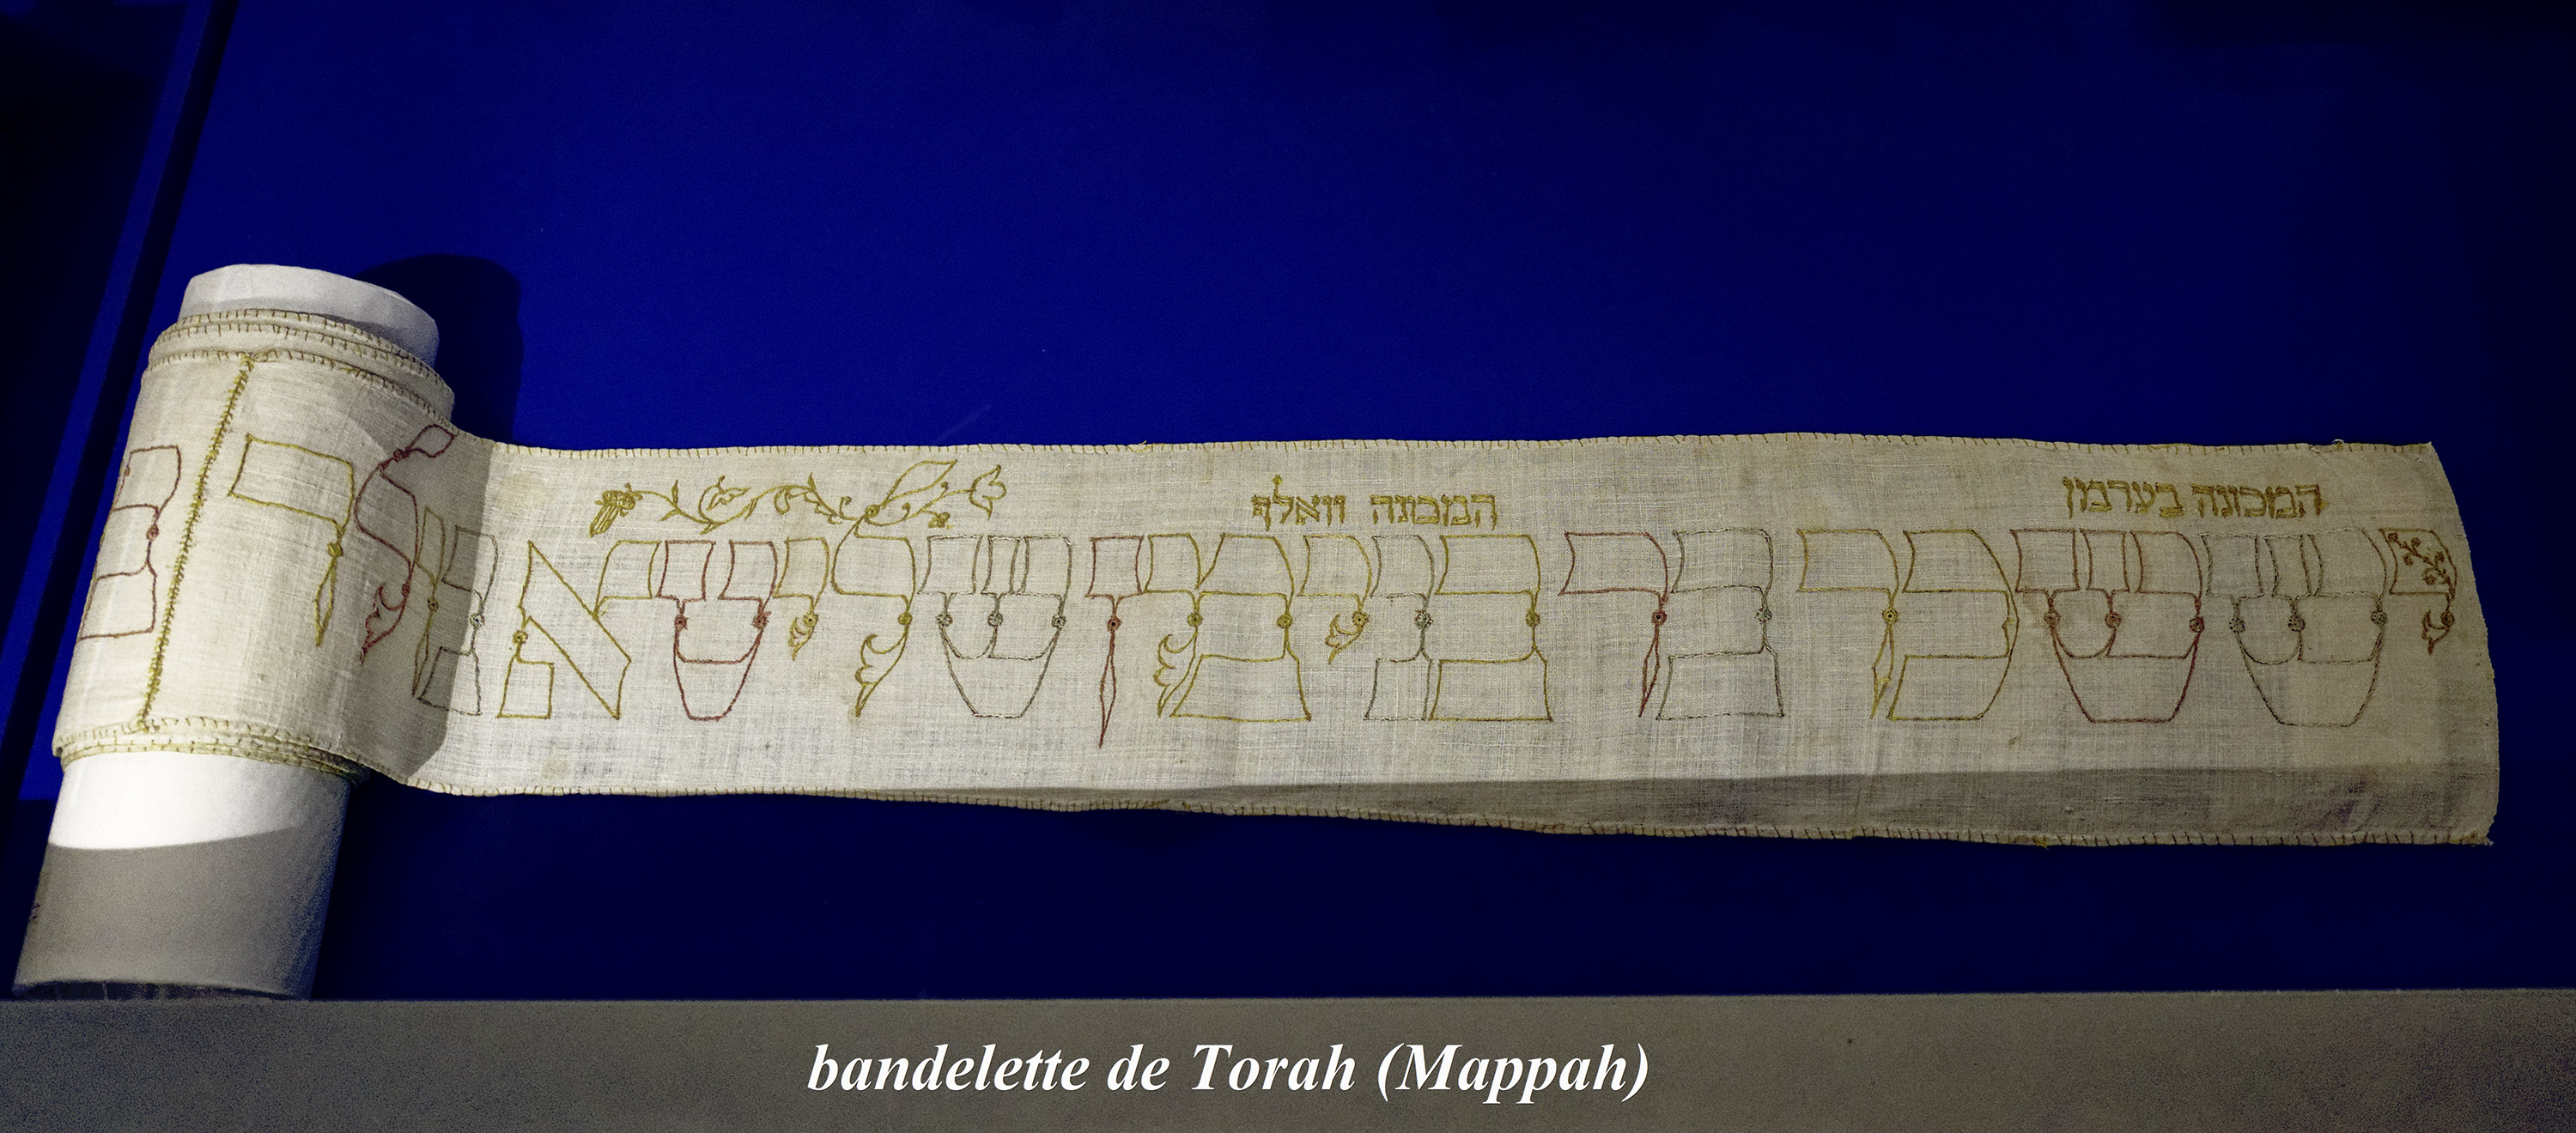 המכונה בערמן
המכונה וואלף
יששכר בר בנימן שליטא נולד ב
bandelette de Torah (Mappah)